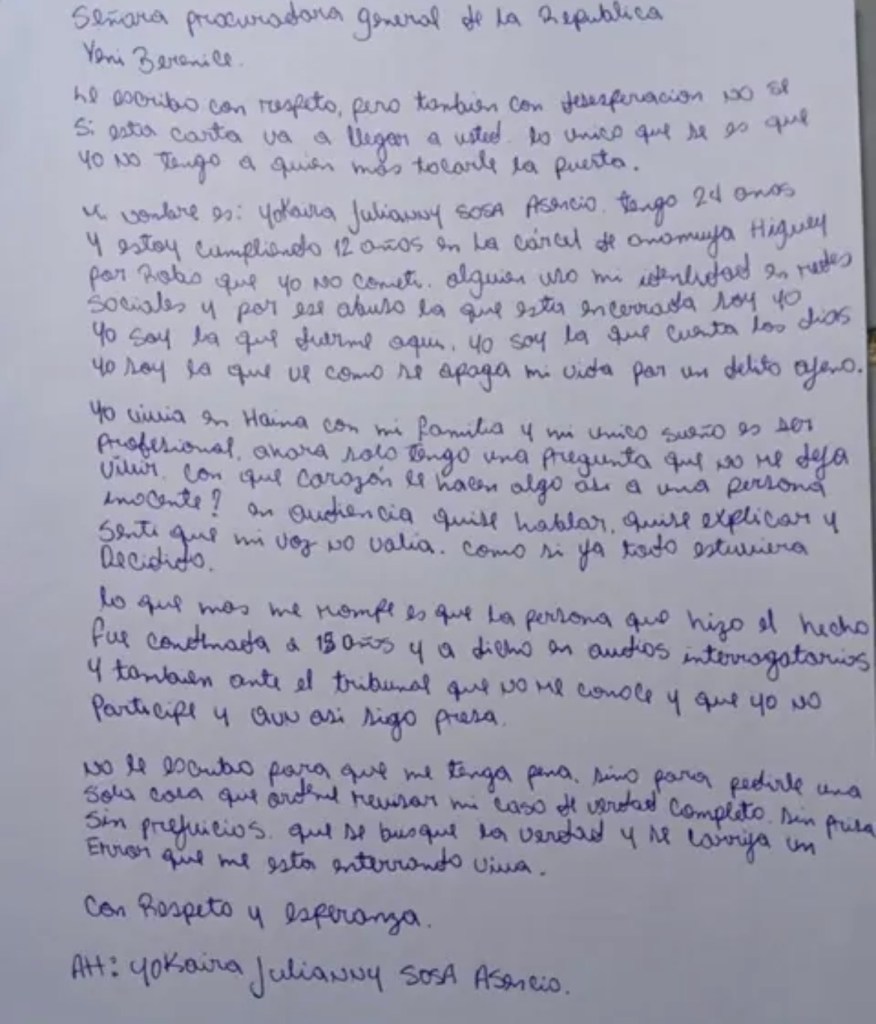 Señora procuradora general de la Republica
Yeni Berenice.
Le escribo con respeto, pero tambien con desesperacion NO se
Si esta carta va a llegar a usted. lo unico que se es que
yo NO tengo a quien mas tocarle la puerta.
Mi nombre es: Yokaira Julianny SOSA Asencio. tengo 24 anos
Y estoy cumpliendo 12 años en la cárcel de anamuya Higuey
por Robo que yo NO cometi. alguien uso mi identidad en redes
Sociales y por ese abuso la que esta encerrada soy yo
Yo soy la que duerme aqui, yo soy la que cuenta los dias
Yo soy la que ve como se apaga mi vida por un delito ajeno.
Yo vivia en Haina con mi familia y mi unico sueño es ser
Profesional. ahora solo tengo una pregunta que NO me deja
Vivir. con que corazón le hacen algo asi a una persona
inocente? en audiencia quise hablar, quise explicar y
Senti que mi voz NO valia. como si ya todo estuviera
Decidido.
lo que mas me rompe es que la persona que hizo el hecho
fue condenada a 15 años y a dicho en audios interrogatorios
Y tambien ante el tribunal que NO me conoce y que yo NO
Participe y aun asi sigo presa.
NO le escribo para que me tenga pena. sino para pedirle una
Sola cosa que ordene revisar mi caso de verdad completo. Sin prisa
Sin prejuicios. que se busque la verdad y se corrija un
Error que me esta enterrando viva.
Con Respeto y esperanza.
Att: Yokaira Julianny SOSA Asencio.